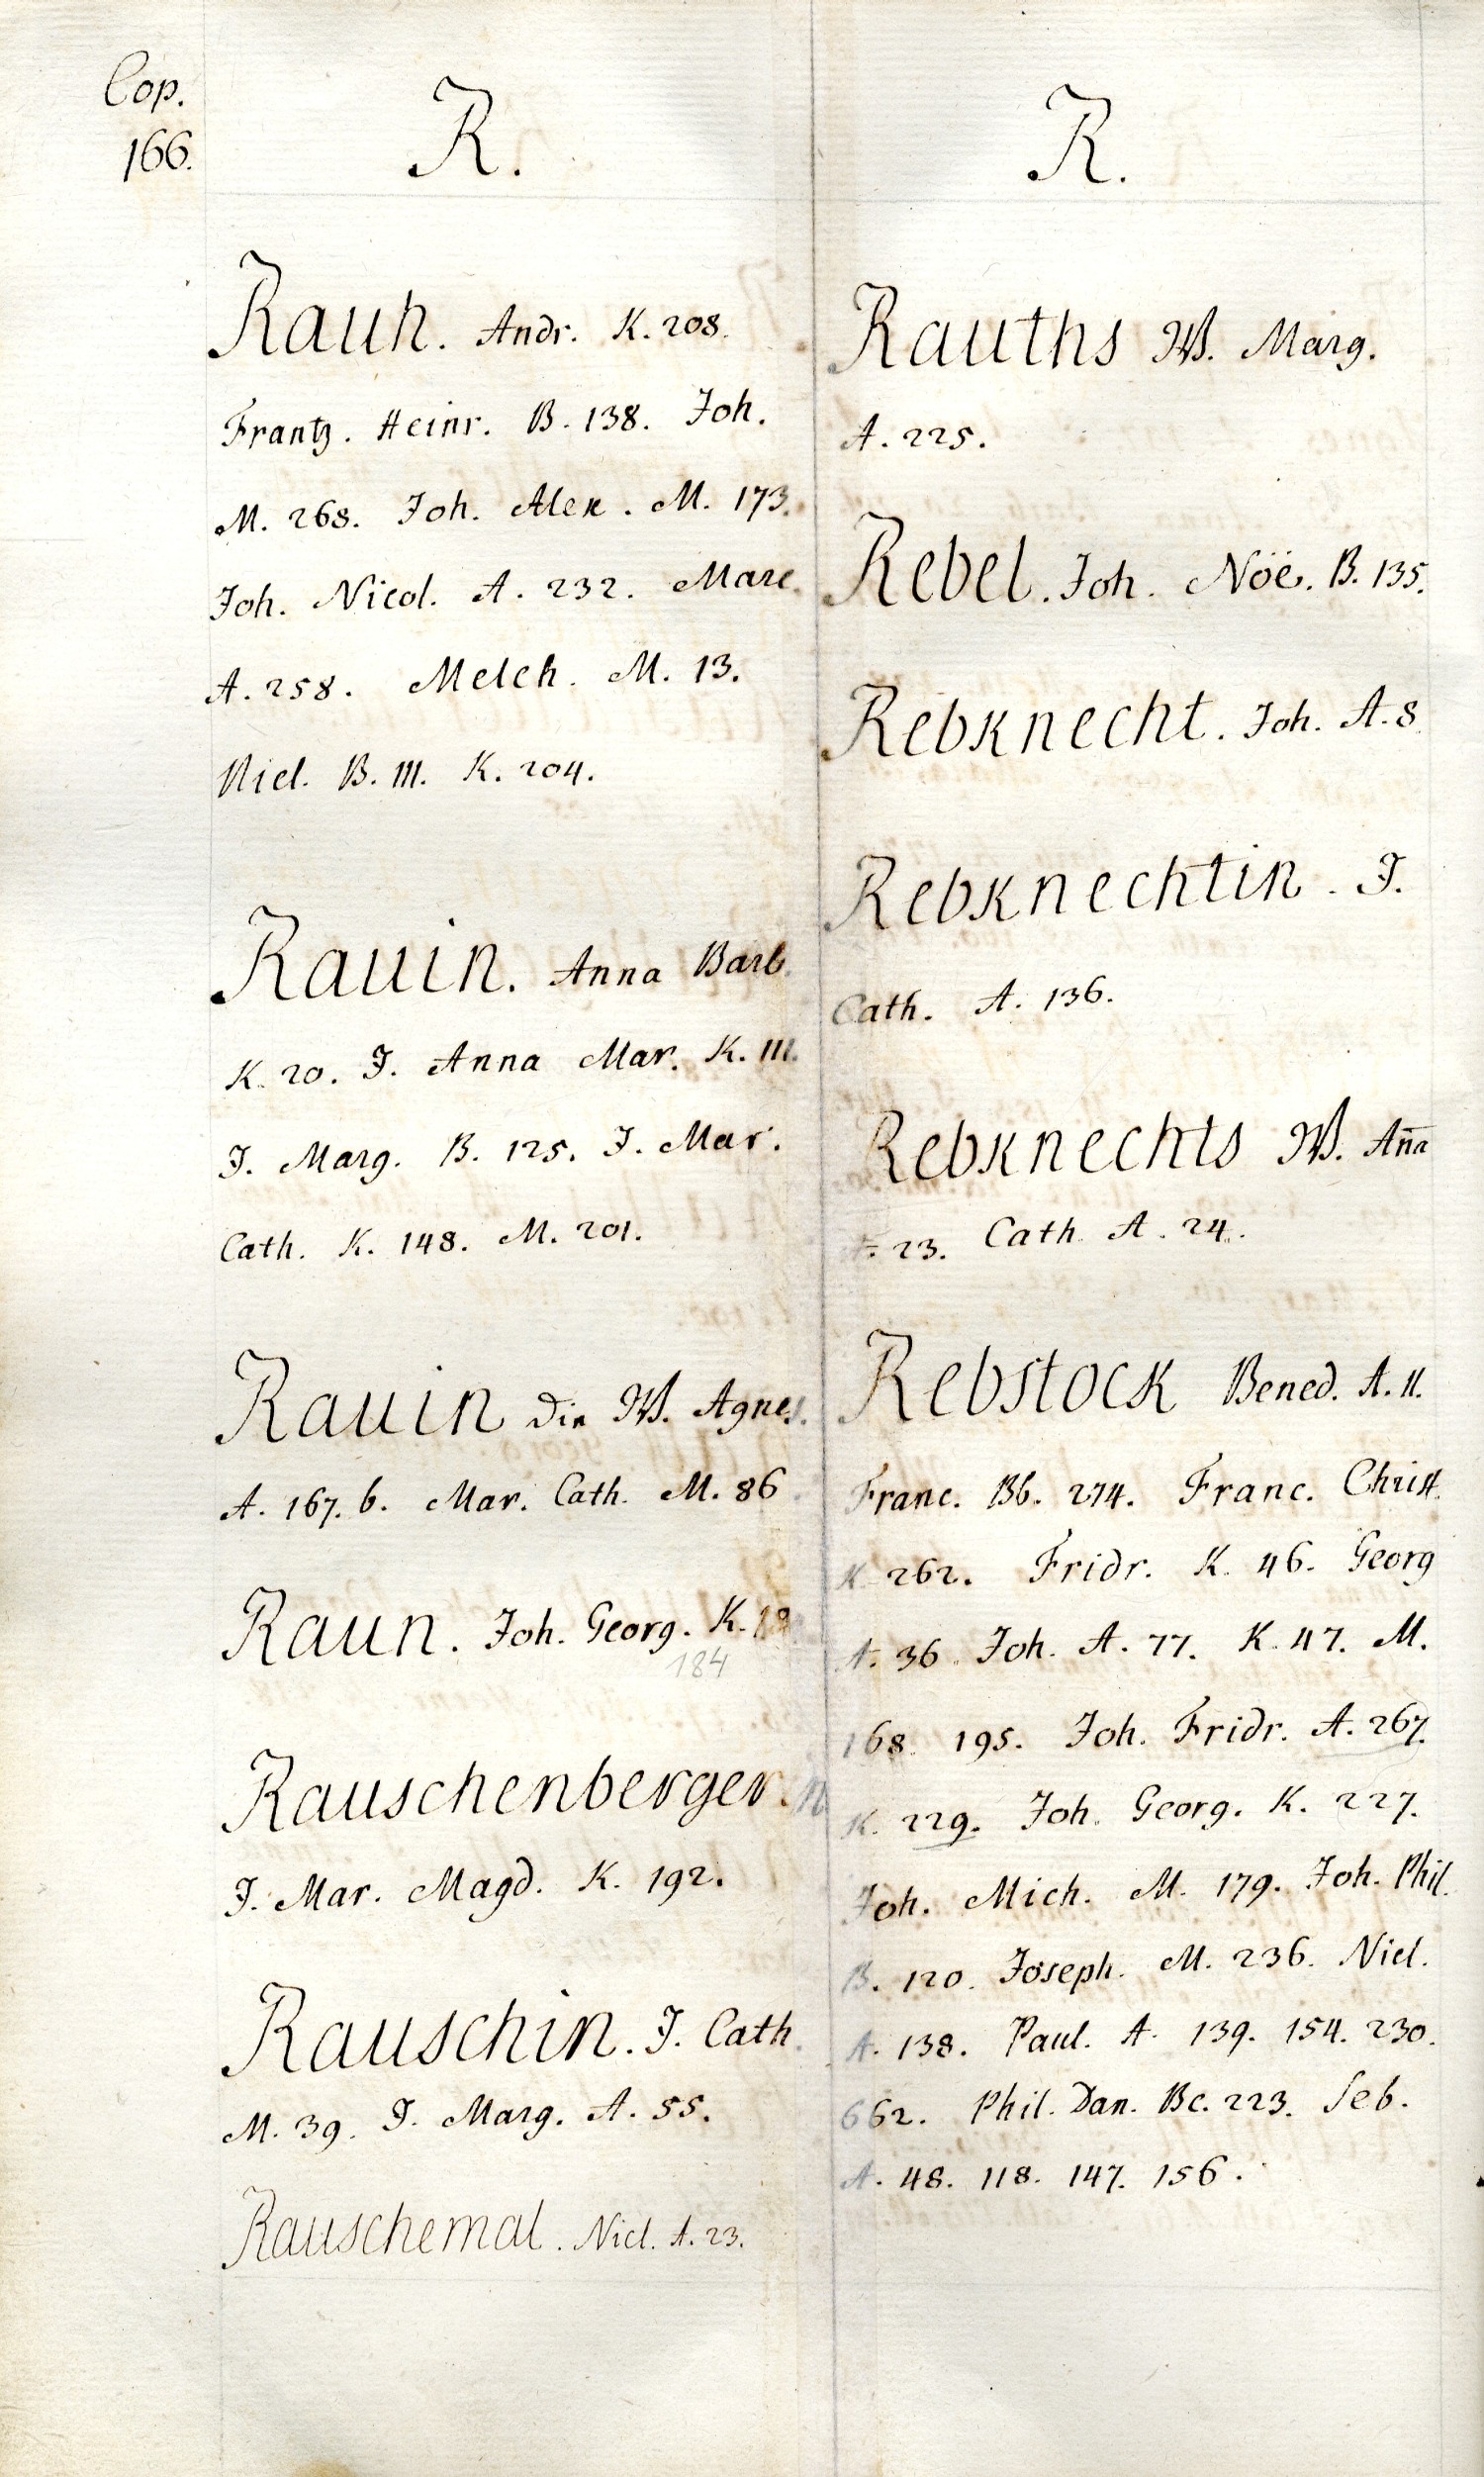 Cop.
166.
R.
Rauh. Andr. K. 208.
Frantz. Heinr. B. 138. Joh.
M. 268. Joh. Alex. M. 173.
Joh. Nicol. A. 232. Marc.
A. 258. Melch. M. 13.
Nicl. B. 111. K. 204.
Rauin. Anna Barb.
K. 20. J. Anna Mar. K. 111.
J. Marg. B. 125. J. Mar.
Cath. K. 148. M. 201.
Rauin die W. Agnes.
A. 167. b. Mar. Cath. M. 86.
Raun. Joh. Georg. K.
184
Rauschenberger.
J. Mar. Magd. K. 192.
Rauschin. J. Cath.
M. 39. J. Marg. A. 55.
Rauschemal. Nicl. A. 23.
R.
Rauths W. Marg.
A. 225.
Rebel. Joh. Nöë. B. 135.
Rebknecht. Joh. A. 8.
Rebknechtin. J.
Cath. A. 136.
Rebknechts W. Aña
A. 23. Cath. A. 24.
Rebstock Bened. A. 11.
Franc. Bb. 274. Franc. Christ.
K. 262. Fridr. K. 46. Georg
A. 36. Joh. A. 77. K. 47. M.
168. 195. Joh. Fridr. A. 267.
K. 229. Joh. Georg. K. 227.
Joh. Mich. M. 179. Joh. Phil.
B. 120. Joseph. M. 236. Nicl.
A. 138. Paul. A. 139. 154. 230.
662. Phil. Dan. Bc. 223. Seb.
A. 48. 118. 147. 156.